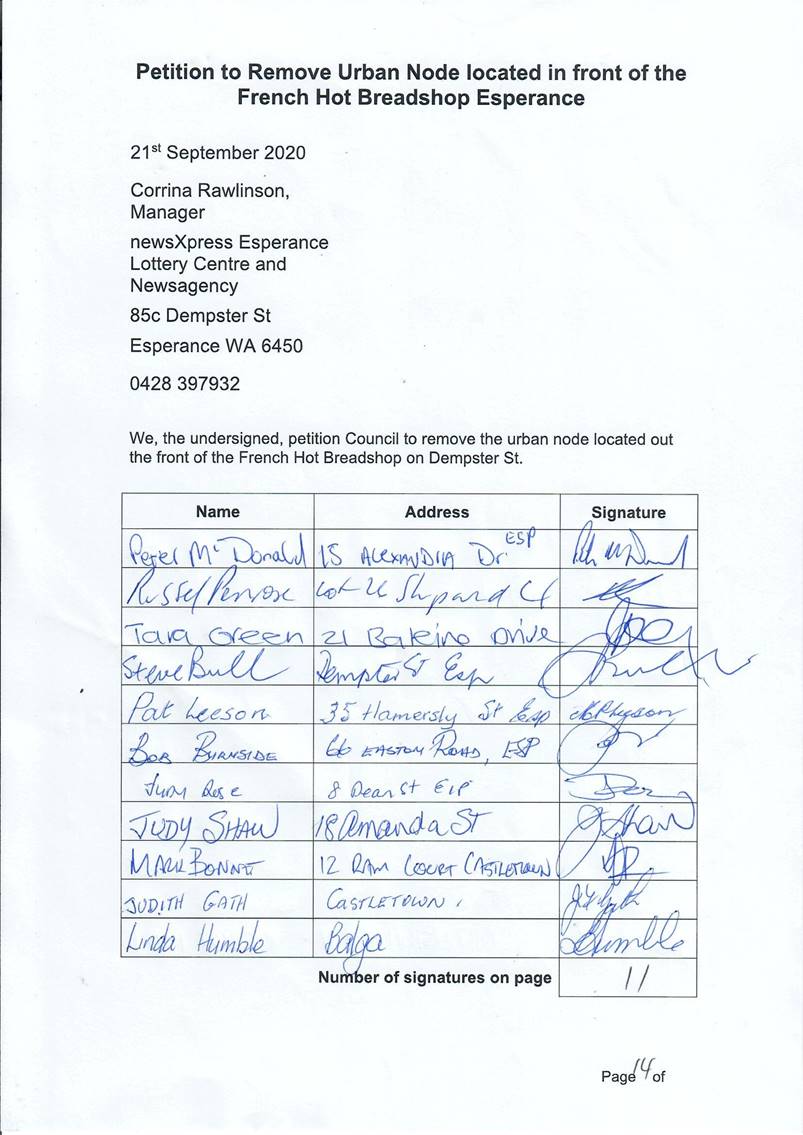 Petition to Remove Urban Node located in front of the
French Hot Breadshop Esperance
21st September 2020
Corrina Rawlinson,
Manager
newsXpress Esperance
Lottery Centre and
Newsagency
85c Dempster St
Esperance WA 6450
0428 397932
We, the undersigned, petition Council to remove the urban node located out
the front of the French Hot Breadshop on Dempster St.
Name Address Signature
Peter McDonald 15 ALEXANDIIA Dr ESP
Russel Penrose Lot
Tara Green 21 Drive
Steve Bull Dempter St Esp
Pat Leeson 35 Hamersly St Esp
BOB BURNSIDE 66 EASTON ROAD, ESP
Judy Rose 8 Dean St ESP
JUDY SHAW 18 Amanda ST J Shaw
MARK BONNETT 12 RAM COURT CASTLETOWN
JUDITH GATH CASTLETOWN
Linda Humble Balga LHumble
Number of signatures on page 11
Page 14 of